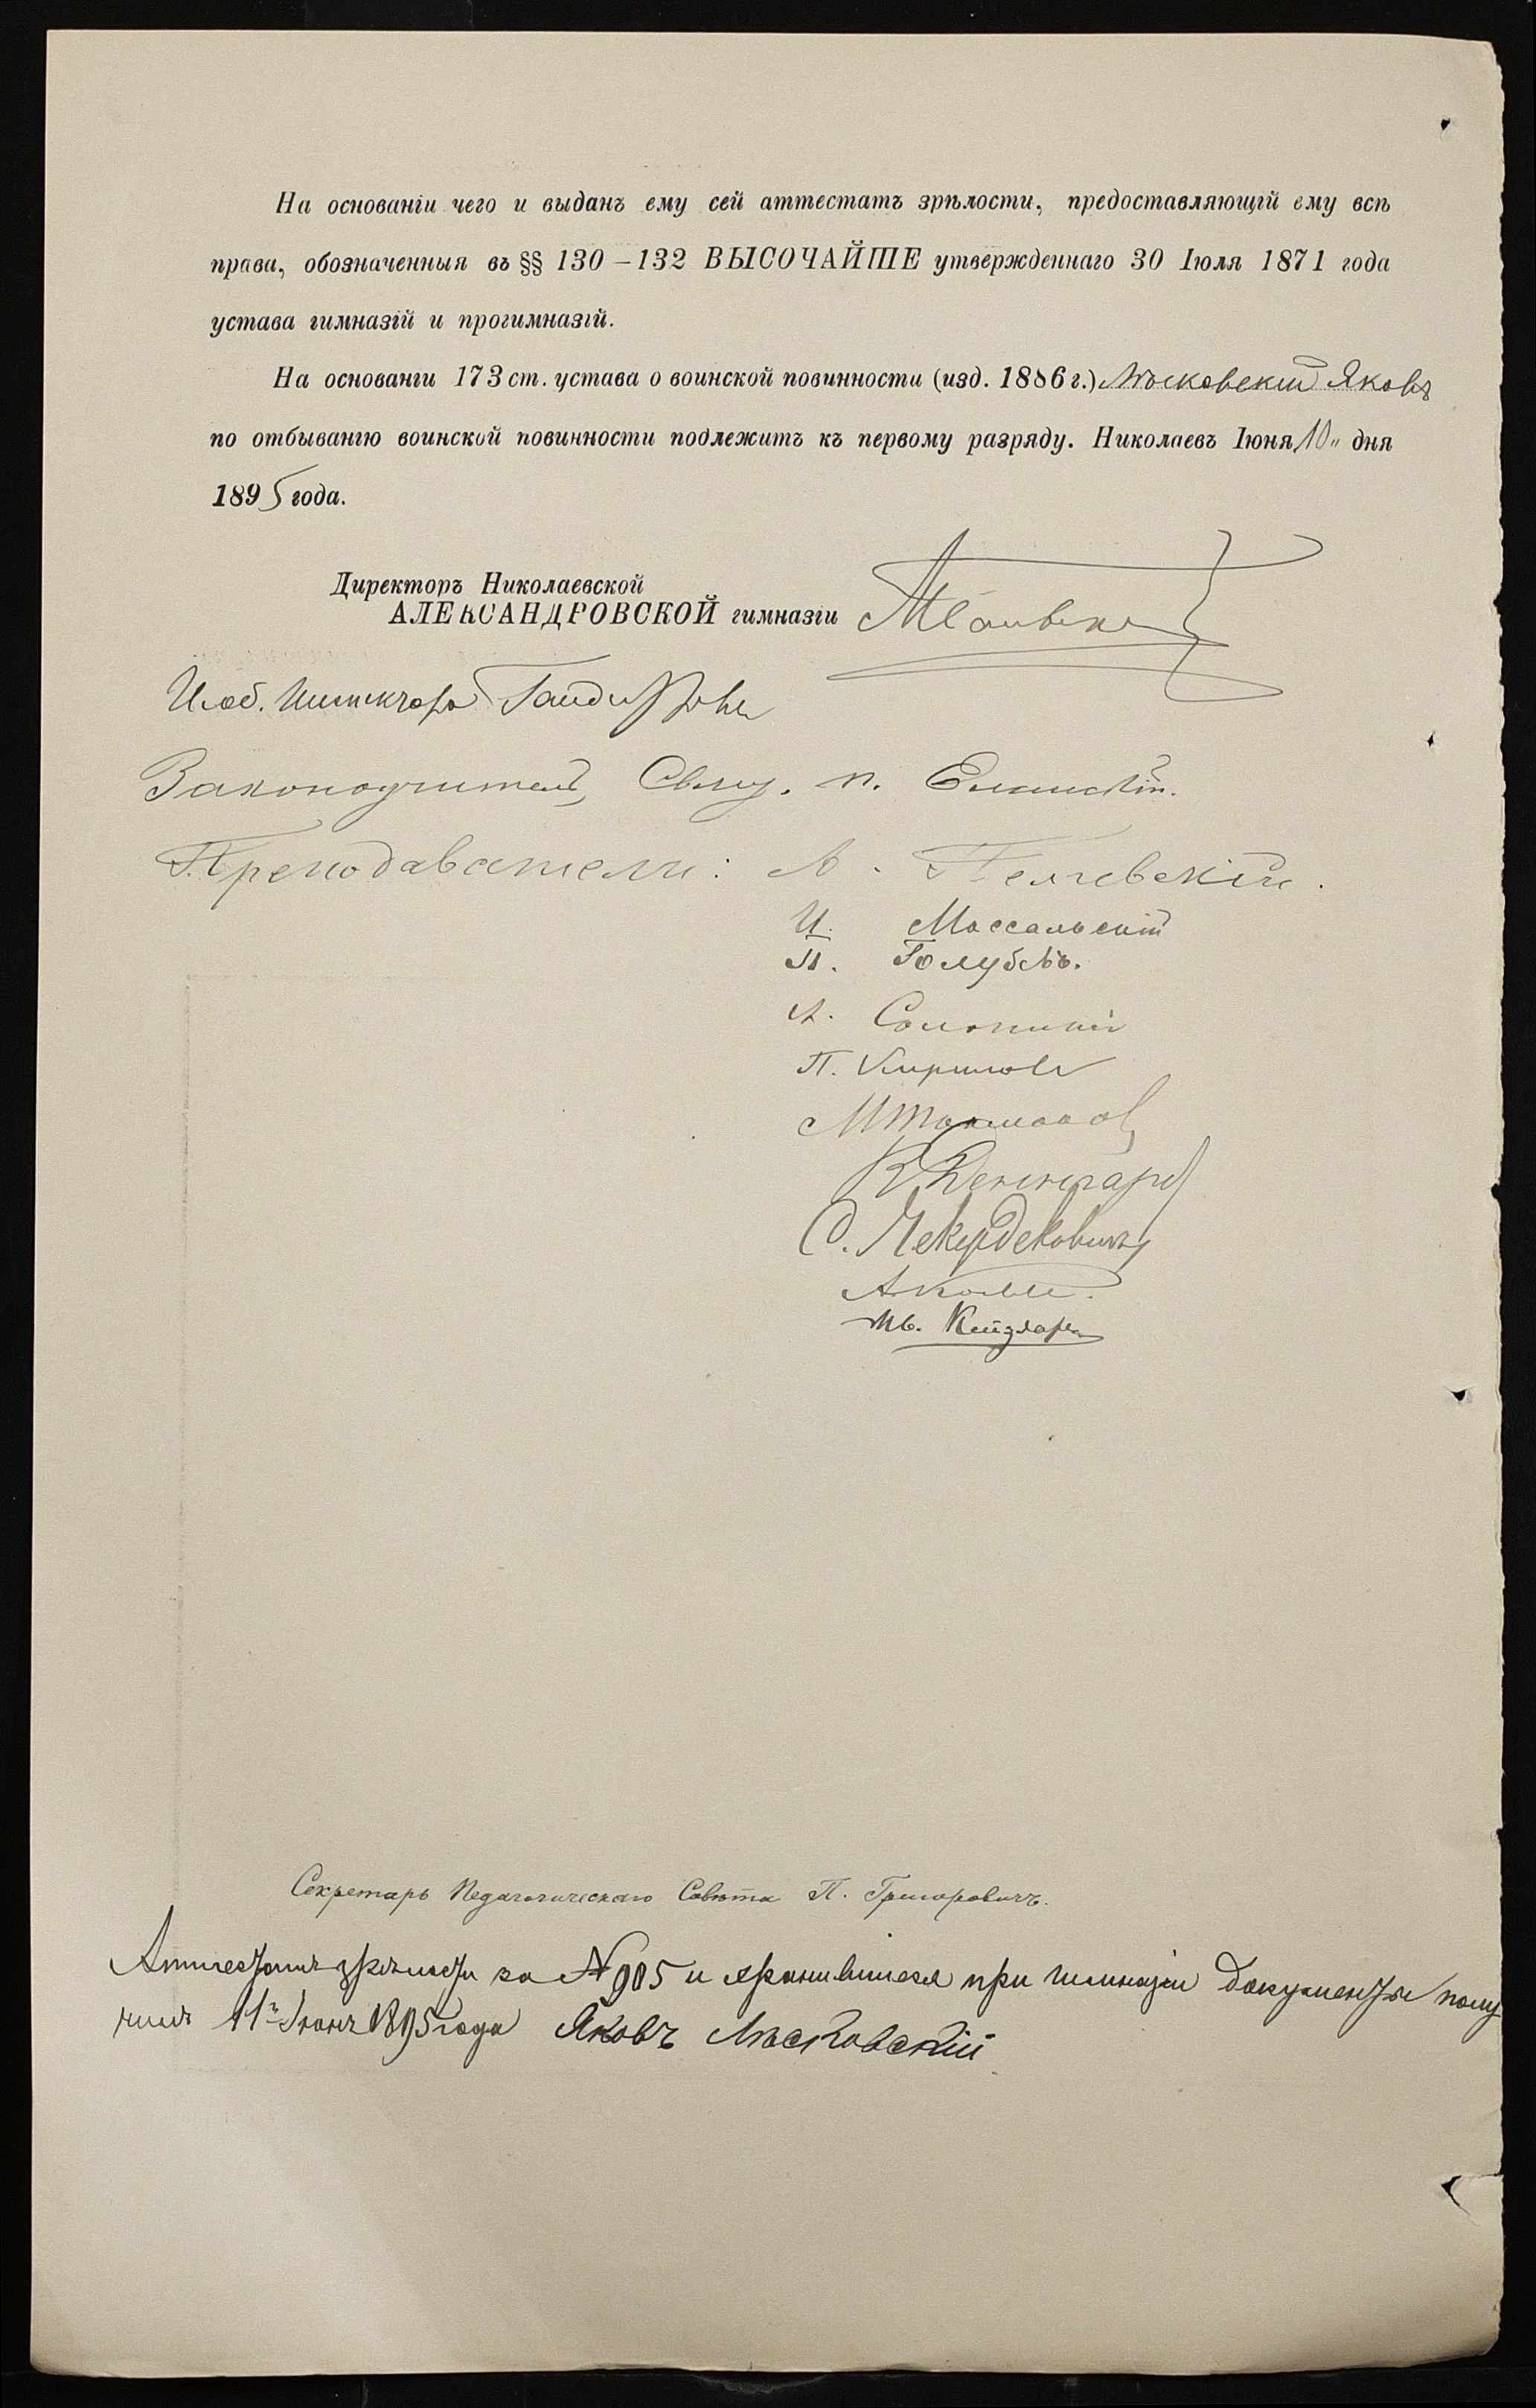 На основаніи чего и выданъ ему сей аттестатъ зрѣлости, предоставляющій ему всѣ
права, обозначенныя въ §§ 130–132 ВЫСОЧАЙШЕ утвержденнаго 30 Іюля 1871 года
устава гимназій и прогимназій.
На основаніи 173 ст. устава о воинской повинности (изд. 1886 г.) Лясковскій Яковъ
по отбыванію воинской повинности подлежитъ къ первому разряду. Николаевъ Іюня 10" дня
1895 года.
Директоръ Николаевской
АЛЕКСАНДРОВСКОЙ гимназіи
Исоб. Инспектора
Законоучитель, Свящ. п.
Преподаватели: А.
И. Массальскій
П. Голубевъ.
А.
П. Кирилловъ
М
В
С. Чекердековичъ
А
Ив.
Секретарь Педагогическаго Совѣта П. Григоровичъ.
Аттестатъ зрѣлости за № 905 и хранившіеся при гимназіи документы полу
чилъ 11го Іюня 1895 года Яковъ Лясковскій